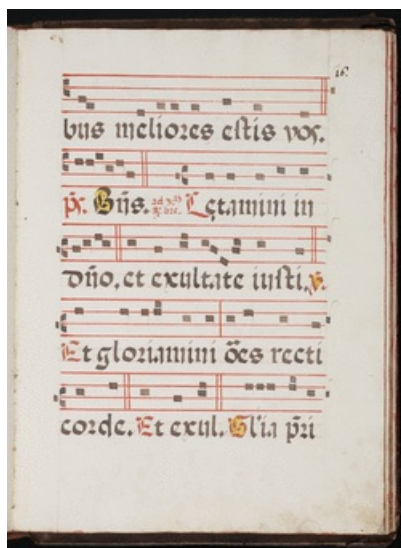 16.
bus meliores estis vos.
ps. Gṽs. ad 3.ã ℟. bre. Lętamini in
dño, et exultate iusti. ℣.
Et gloriamini oẽs recti
corde. Et exul. Gl'ia p̃ri